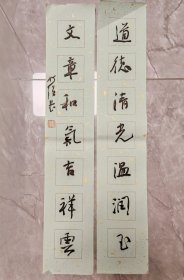 道德清光温润玉
文章和氣吉祥雲